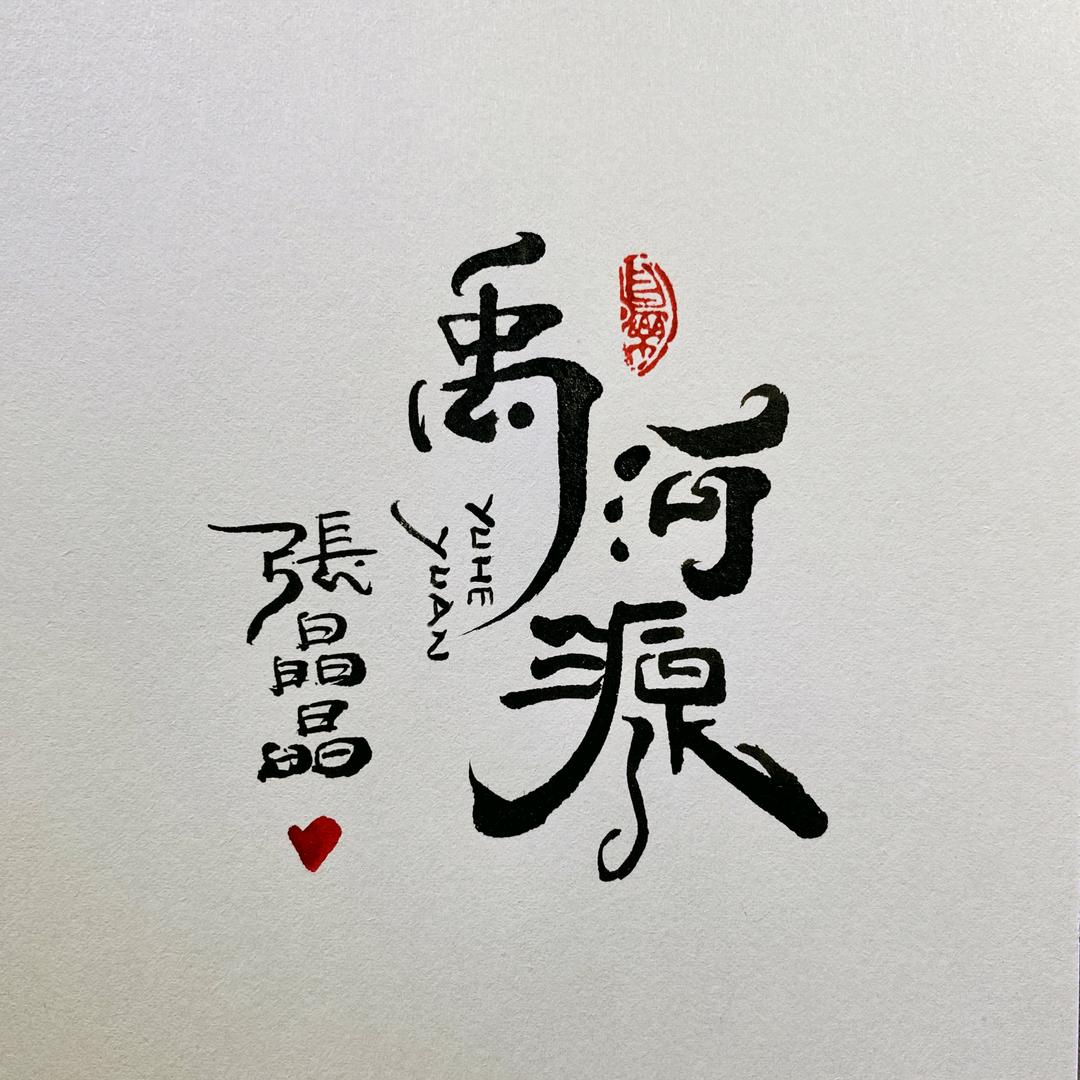 禹河源
YUHE
YUAN
張晶晶